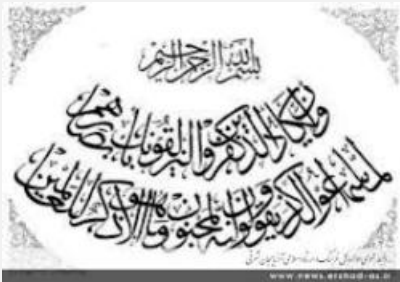 بسم الله الرحمن الرحیم
وإن یکاد الذین کفروا لیزلقونک بأبصارهم
لما سمعوا الذکر ویقولون إنه لمجنون وما هو إلا ذکر للعالمین
www.news.ershad-as.ir